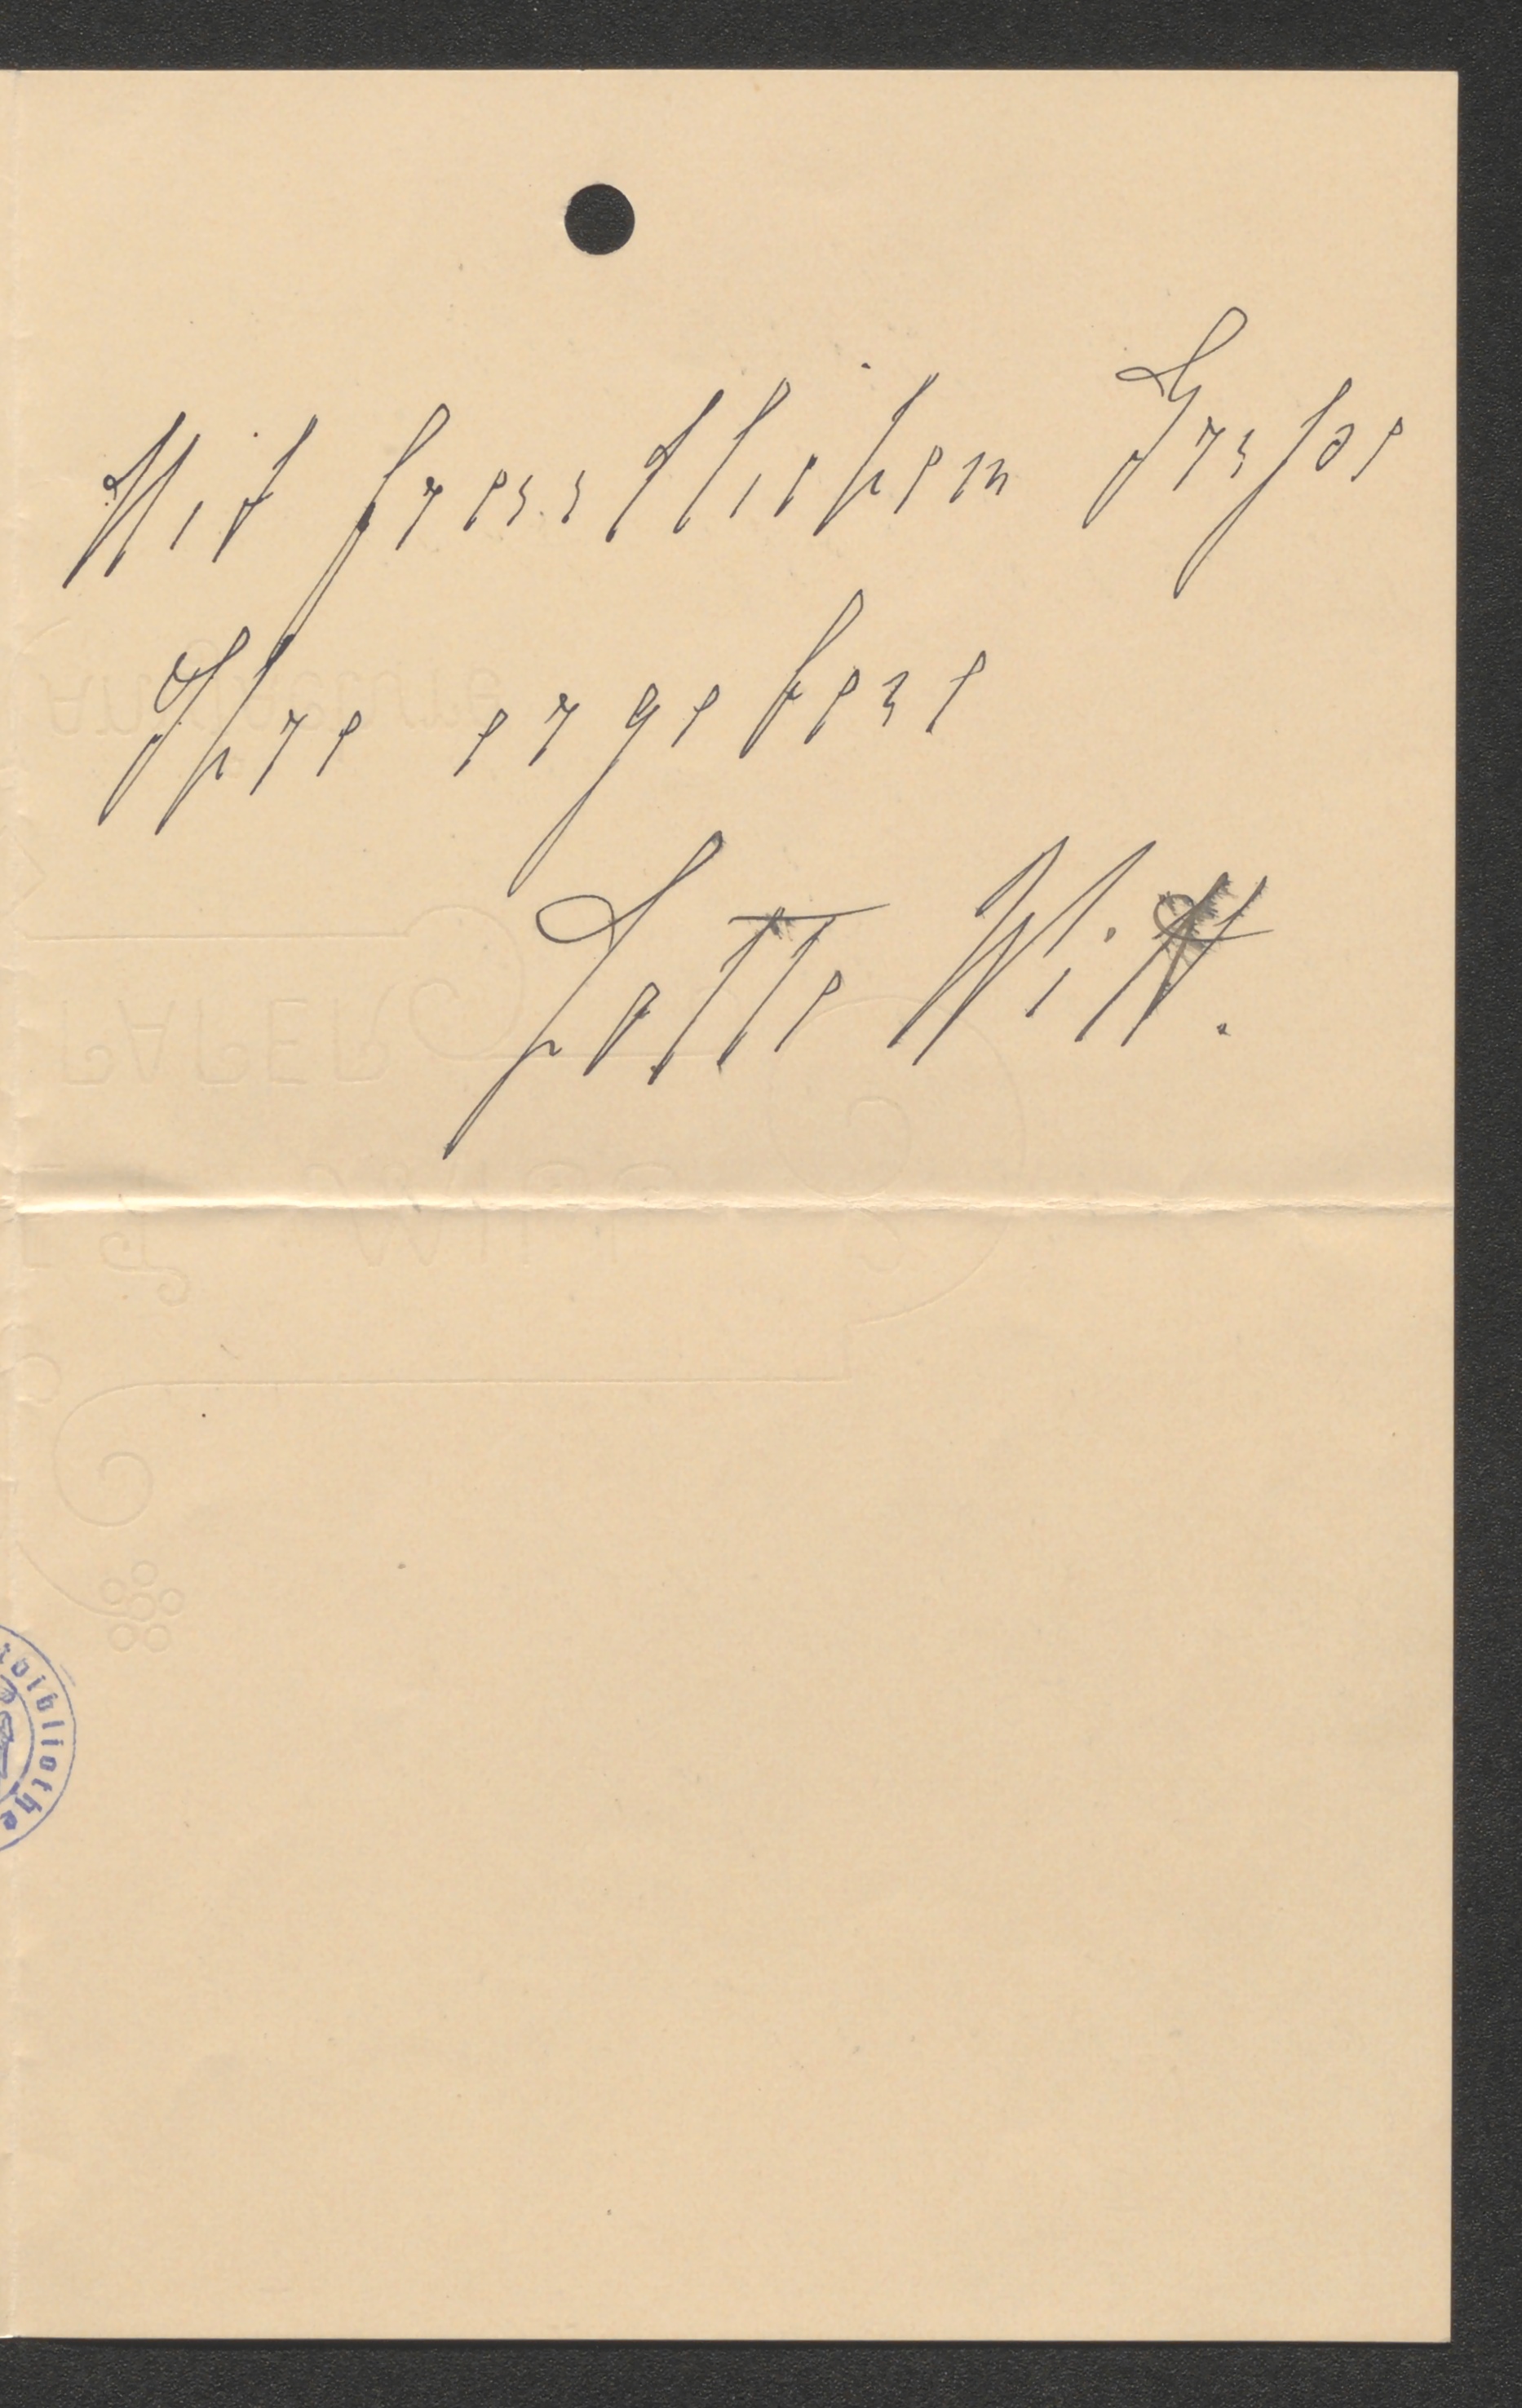 Mit freundlichem Gruße
Ihre ergebene
Lotte Witt.
bibliothe
PAPER